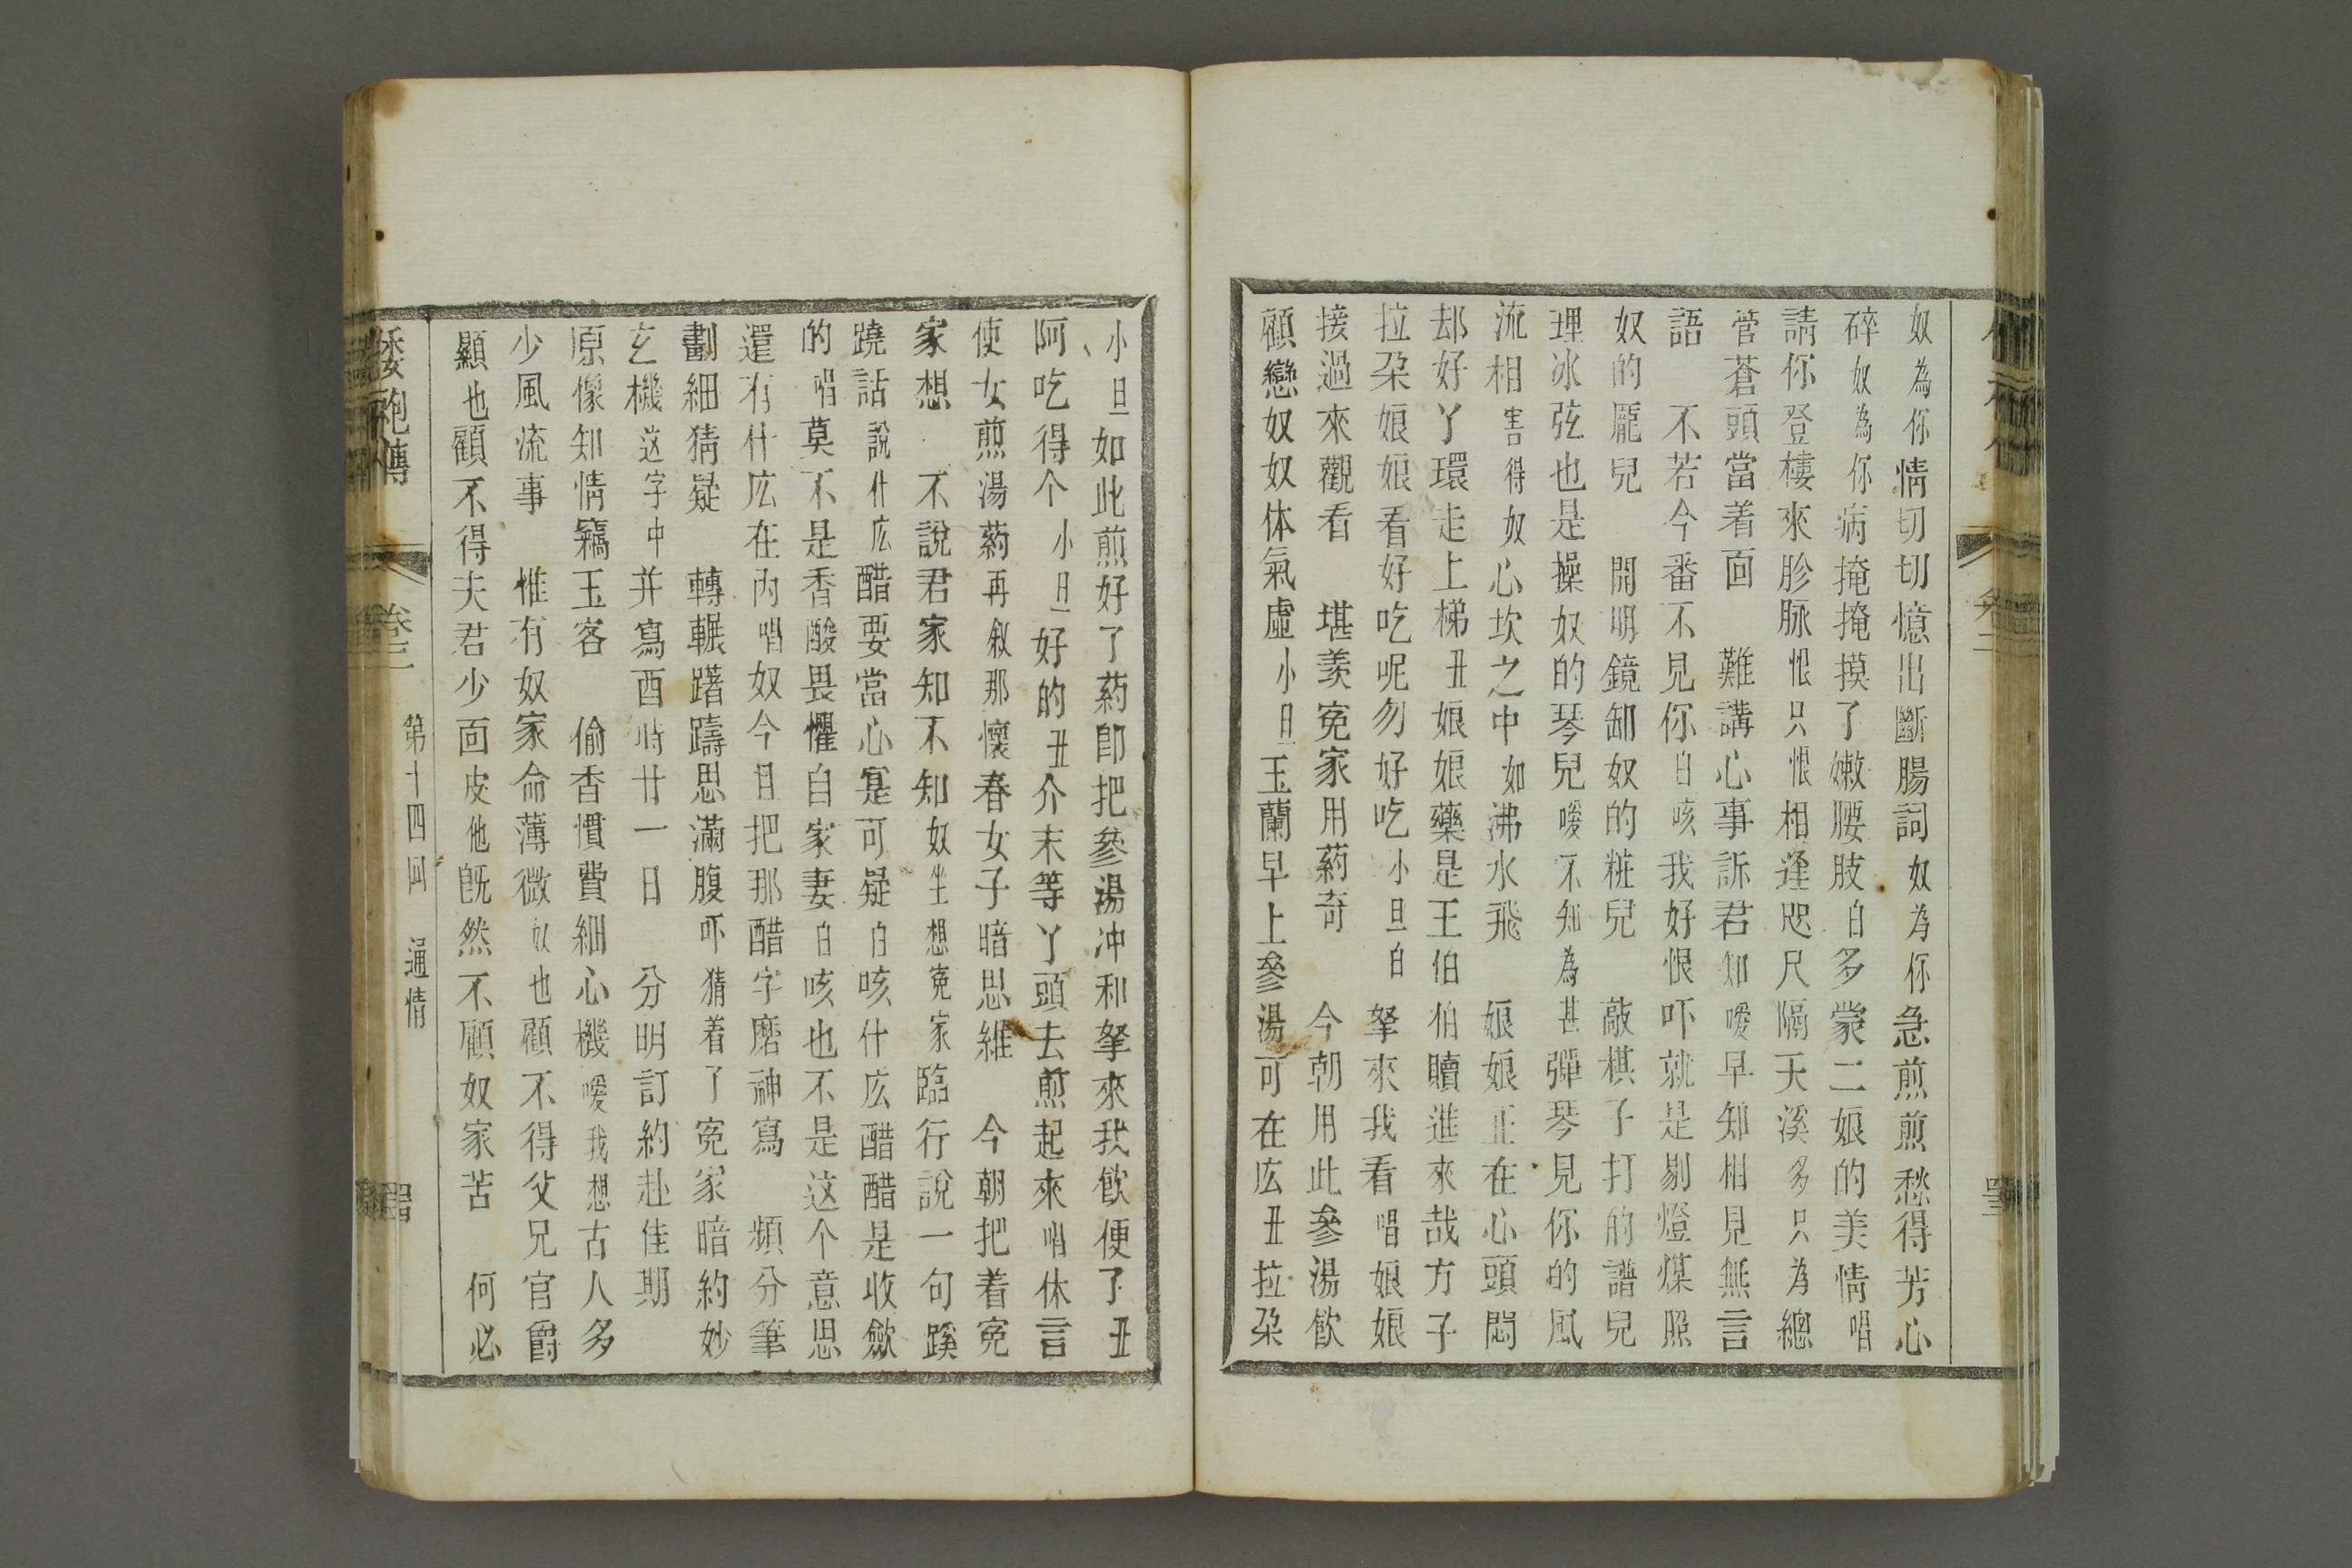 奴為你情切切憶出斷腸詞奴為你急煎煎愁得芳心
碎奴為你病掩掩摸了嫩腰肢白多蒙二娘的美情唱
請你登樓來胗脉恨只恨相逢咫尺隔天溪多只為總
管蒼頭當着面　難講心事訴君知噯早知相見無言
語　不若今番不見你白咳我好恨吓就是剔燈煤照
奴的龐兒　開明鏡卸奴的粧兒　敲棋子打的譜兒
理冰弦也是操奴的琴兒噯不知為甚彈琴見你的風
流相害得奴心坎之中如沸水飛　娘娘正在心頭悶
却好丫環走上梯丑娘娘藥是王伯伯贖進來哉方子
拉朶娘娘看好吃呢勿好吃小旦白拏來我看唱娘娘
接過來觀看　堪羡寃家用葯奇　今朝用此參湯飲
顧戀奴奴体氣虛小旦玉蘭早上參湯可在庅丑拉朶
小旦如此煎好了葯卽把參湯冲和拏來我飲便了丑
阿吃得个小旦好的丑介末等丫頭去煎起來唱休言
使女煎湯葯再敘那懷春女子暗思維　今朝把着寃
家想　不說君家知不知奴坐想寃家臨行說一句蹊
蹺話說什庅醋要當心寔可疑白咳什庅醋醋是收歛
的唱莫不是香酸畏懼自家妻白咳也不是这个意思
還有什庅在內唱奴今日把那醋字磨神寫　頻分筆
劃細猜疑　轉輾躇躊思滿腹吓猜着了寃家暗約妙
玄機这字中并寫酉時廿一日　分明訂約赴佳期
原像知情竊玉客　偷香慣費細心機噯我想古人多
少風流事　惟有奴家命薄微奴也顧不得父兄官爵
顯也顧不得夫君少面皮他旣然不顧奴家苦　何必
倭袍傳　卷三　第十四回　通情